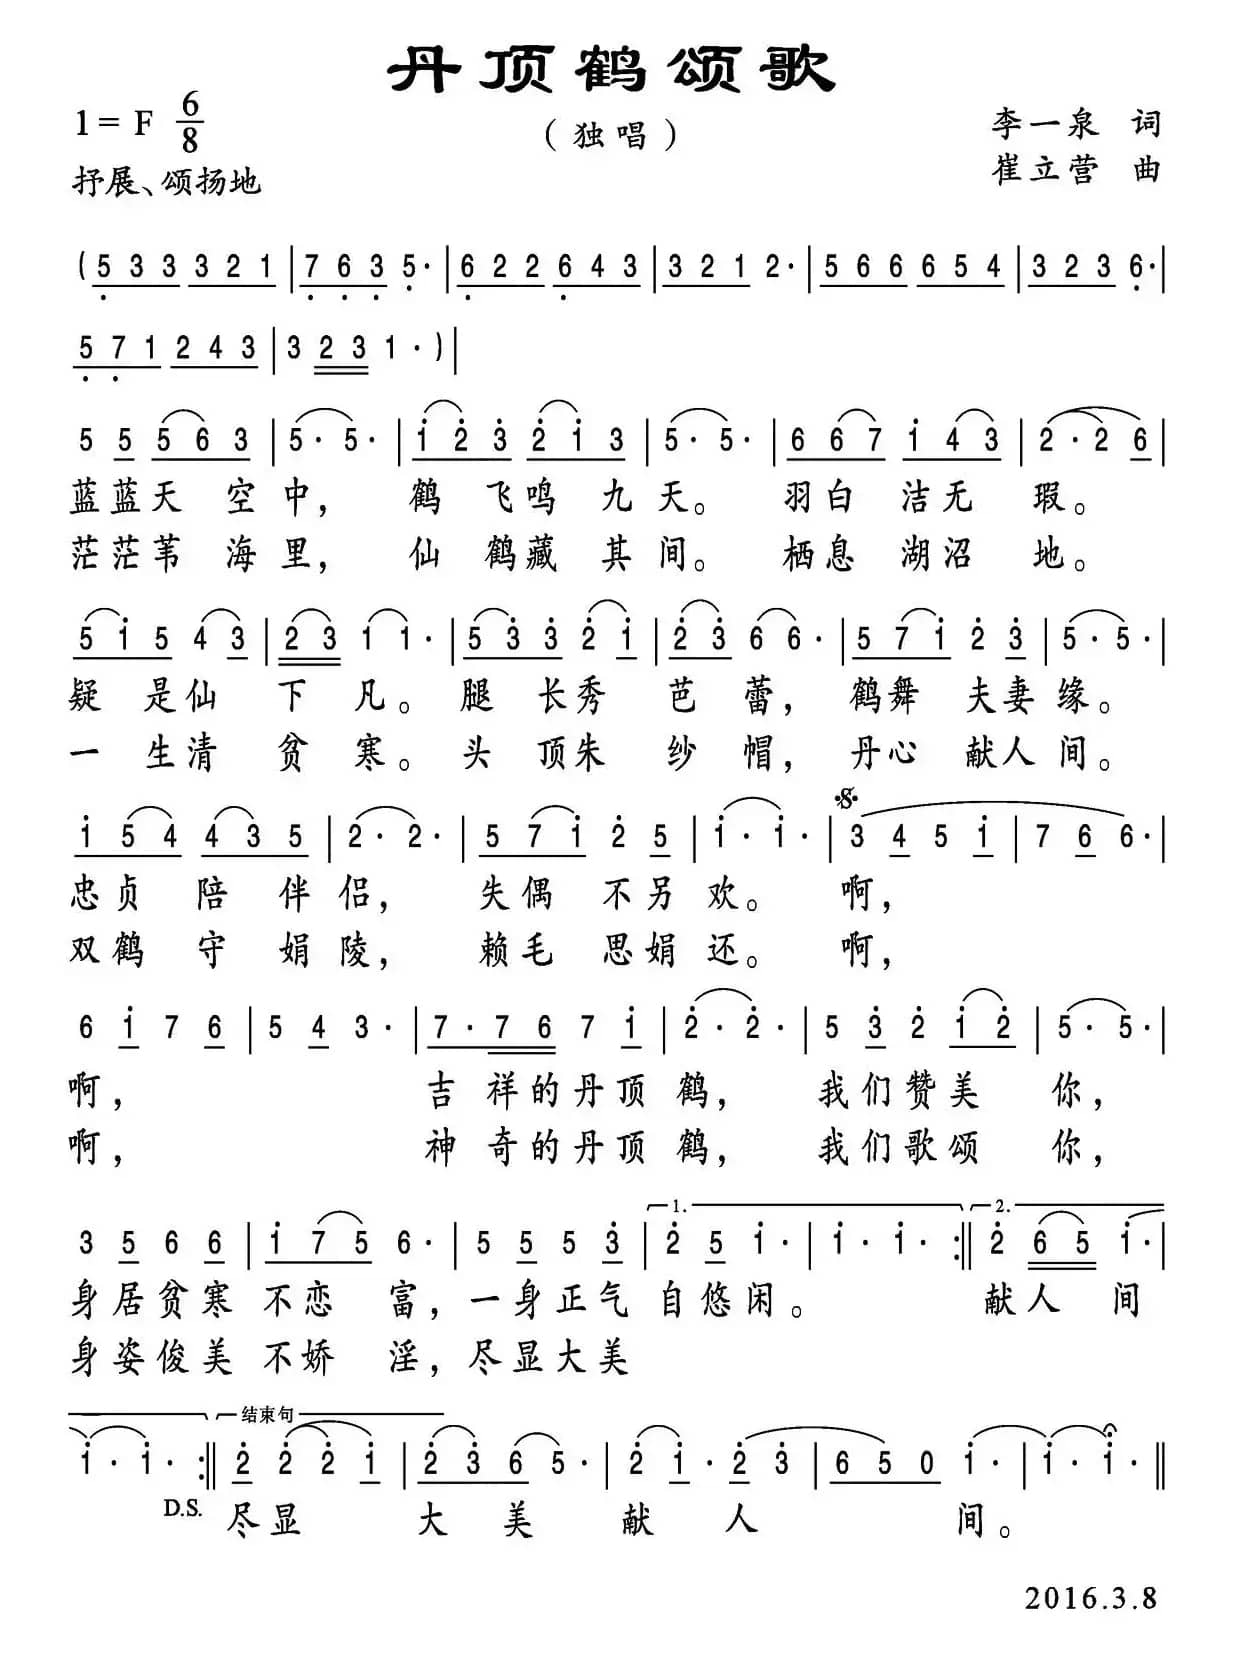 丹顶鹤颂歌
1= F 6/8
（独唱）
李一泉 词
抒展、颂扬地
崔立营 曲
( 5̣ 3 3 3 2 1 | 7̣ 6̣ 3̣ 5̣· | 6̣ 2 2 6̣ 4 3 | 3 2 1 2· | 5 6 6 6 5 4 | 3 2 3 6̣· |
5̣ 7̣ 1 2 4 3 | 3 2 3 1 · ) |
5 5 5 6 3 | 5· 5· | 1̇ 2̇ 3̇ 2̇ 1̇ 3 | 5· 5· | 6 6 7 1̇ 4 3 | 2 · 2 6 |
蓝蓝天 空中， 鹤 飞鸣 九天。 羽白 洁无 瑕。
茫茫苇 海里， 仙 鹤藏 其间。 栖息 湖沼 地。
5 1̇ 5 4 3 | 2 3 1 1· | 5 3̇ 3̇ 2̇ 1̇ | 2̇ 3̇ 6 6· | 5 7 1̇ 2̇ 3̇ | 5· 5· |
疑 是仙 下 凡。 腿 长秀 芭 蕾， 鹤舞 夫妻缘。
一 生清 贫 寒。 头 顶朱 纱 帽， 丹心 献人间。
1̇ 5 4 4 3 5 | 2· 2· | 5 7 1̇ 2̇ 5 | 1̇· 1̇· | 3 4 5 1̇ | 7 6 6· |
忠贞 陪 伴侣， 失偶 不另 欢。 啊，
双鹤 守 娟陵， 赖毛 思娟 还。 啊，
6 1̇ 7 6 | 5 4 3· | 7 · 7 6 7 1̇ | 2̇· 2̇· | 5 3̇ 2̇ 1̇ 2̇ | 5· 5· |
啊， 吉 祥的丹顶 鹤， 我们赞美 你，
啊， 神 奇的丹顶 鹤， 我们歌颂 你，
1. 2.
3 5 6 6 | 1̇ 7 5 6· | 5 5 5 3̇ | 2̇ 5 1̇· | 1̇· 1̇· :|| 2̇ 6 5 1̇· |
身居贫寒 不恋 富， 一身正气 自悠闲。 献人 间
身姿俊美 不娇 淫， 尽显大美
结束句
1̇· 1̇· :|| 2̇ 2̇ 2̇ 1̇ | 2̇ 3̇ 6 5· | 2̇ 1̇ · 2̇ 3̇ | 6 5 0 1̇· | 1̇· 1̇· ||
D.S.
尽显 大 美 献 人 间。
2016.3.8